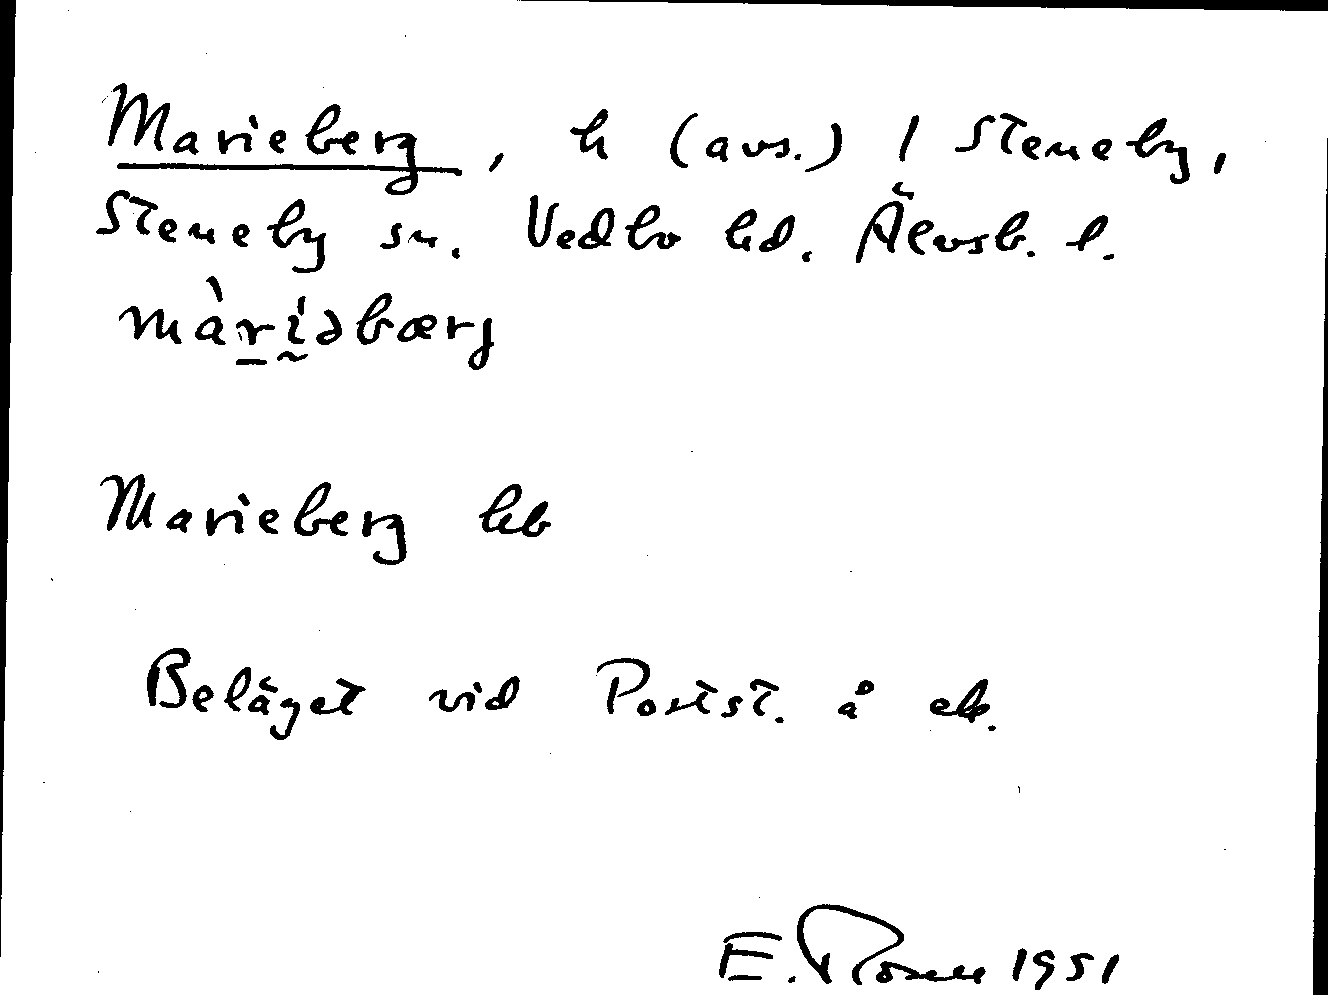 Marieberg, h (avs.) / Steneby,
Steneby sn. Vedbo hd. Älvsb. l.
màríəbærj
Marieberg hb
Beläget vid Postst. å ek.
E. Rosen 1951